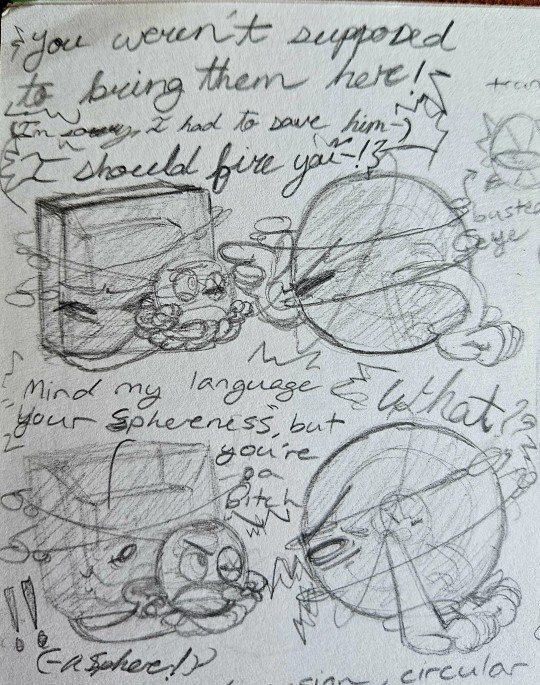 You weren't supposed
to bring them here!
(I'm sorry, I had to save him-)
I should fire you-!
busted
eye
Mind my language
your Sphereness, but
you're
a
Bitch
What?
!!
(-a sphere!)
circular